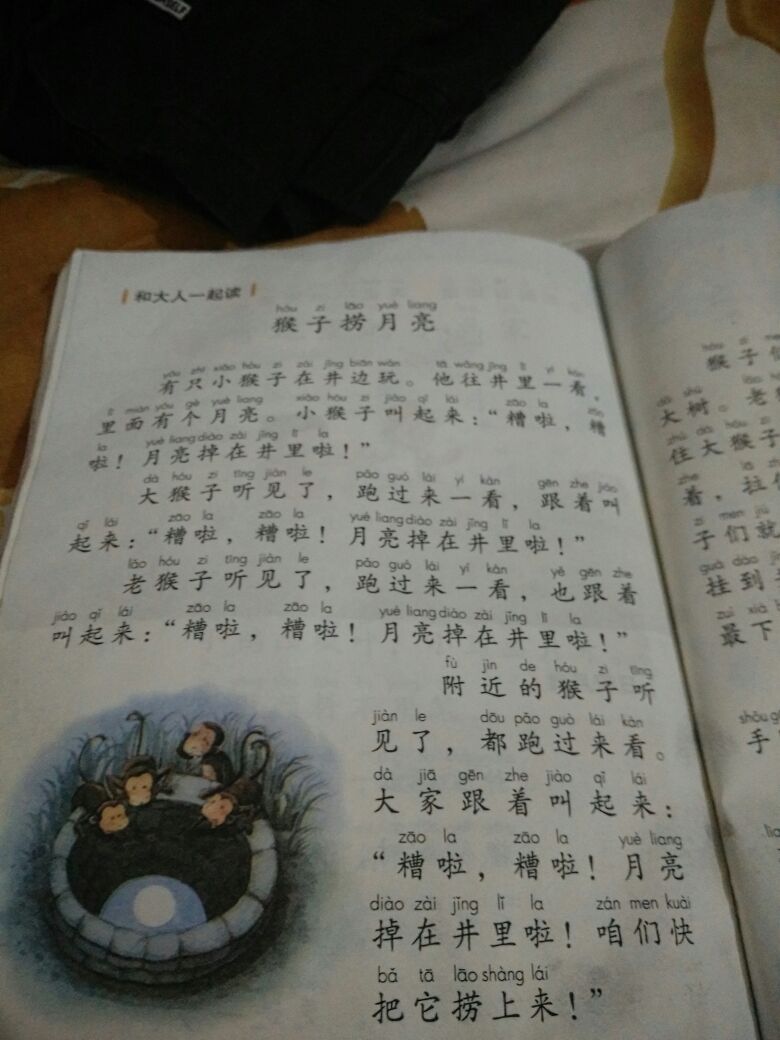 SELF
和大人一起读
hóu zi lāo yuè liang
猴子捞月亮
yǒu zhī xiǎo hóu zi zài jǐng biān wán tā wǎng jǐng lǐ yí kàn
有只小猴子在井边玩。他往井里一看，
lǐ miàn yǒu gè yuè liang xiǎo hóu zi jiào qǐ lái zāo la zāo
里面有个月亮。小猴子叫起来：“糟啦，糟
la yuè liang diào zài jǐng lǐ la
啦！月亮掉在井里啦！”
dà hóu zi tīng jiàn le pǎo guò lái yí kàn gēn zhe jiào
大猴子听见了，跑过来一看，跟着叫
qǐ lái zāo la zāo la yuè liang diào zài jǐng lǐ la
起来：“糟啦，糟啦！月亮掉在井里啦！”
lǎo hóu zi tīng jiàn le pǎo guò lái yí kàn yě gēn zhe
老猴子听见了，跑过来一看，也跟着
jiào qǐ lái zāo la zāo la yuè liang diào zài jǐng lǐ la
叫起来：“糟啦，糟啦！月亮掉在井里啦！”
fù jìn de hóu zi tīng
附近的猴子听
jiàn le dōu pǎo guò lái kàn
见了，都跑过来看。
dà jiā gēn zhe jiào qǐ lái
大家跟着叫起来：
zāo la zāo la yuè liang
“糟啦，糟啦！月亮
diào zài jǐng lǐ la zán men kuài
掉在井里啦！咱们快
bǎ tā lāo shàng lái
把它捞上来！”
hóu zi men
猴子们
dà shù lǎo
大树。老
zhù dà hóu zi
住大猴子
zhe lā zh
着，拉
zi men jiù
子们就
guà dào
挂到
zuì xià
最下
shǒu
手